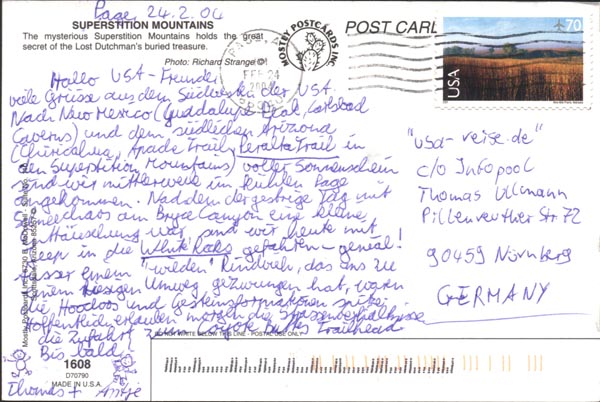 Page, 24.2.04
SUPERSTITION MOUNTAINS
The mysterious Superstition Mountains holds the great
secret of the Lost Dutchman's buried treasure.
Photo: Richard Strange
Hallo USA-Freunde,
viele Grüsse aus dem Südwesten der USA.
Nach New Mexico (Guadalupe Peak, Carlsbad
Caverns) und dem südlichen Arizona
(Chiricahua, Apache Trail, Peralta Trail in
den Superstition Mountains) voller Sonnenschein
sind wir mittlerweile im kühlen Page
angekommen. Nachdem der gestrige Tag mit
Schneechaos am Bryce Canyon eine kleine
Enttäuschung war, sind wir heute mit
Jeep in die White Rocks gefahren - genial!
Ausser einem "wilden" Rindvieh, das uns zu
einem riesigen Umweg gezwungen hat, waren
die Hoodoos und Gesteinsformationen
Hoffentlich erlauben morgen die Strassenverhältnisse
die Zufahrt zum Coyote Buttes Trailhead
Bis bald,
Thomas + Antje
MOSTLY POSTCARDS INC
POST CARD
FEB 24
USA
70
"usa-reise.de"
c/o Infopool
Thomas Ullmann
Pillenreuther Str. 72
90459 Nürnberg
GERMANY
DO NOT WRITE BELOW THIS LINE - POSTAL USE ONLY
1608
D70790
MADE IN U.S.A.